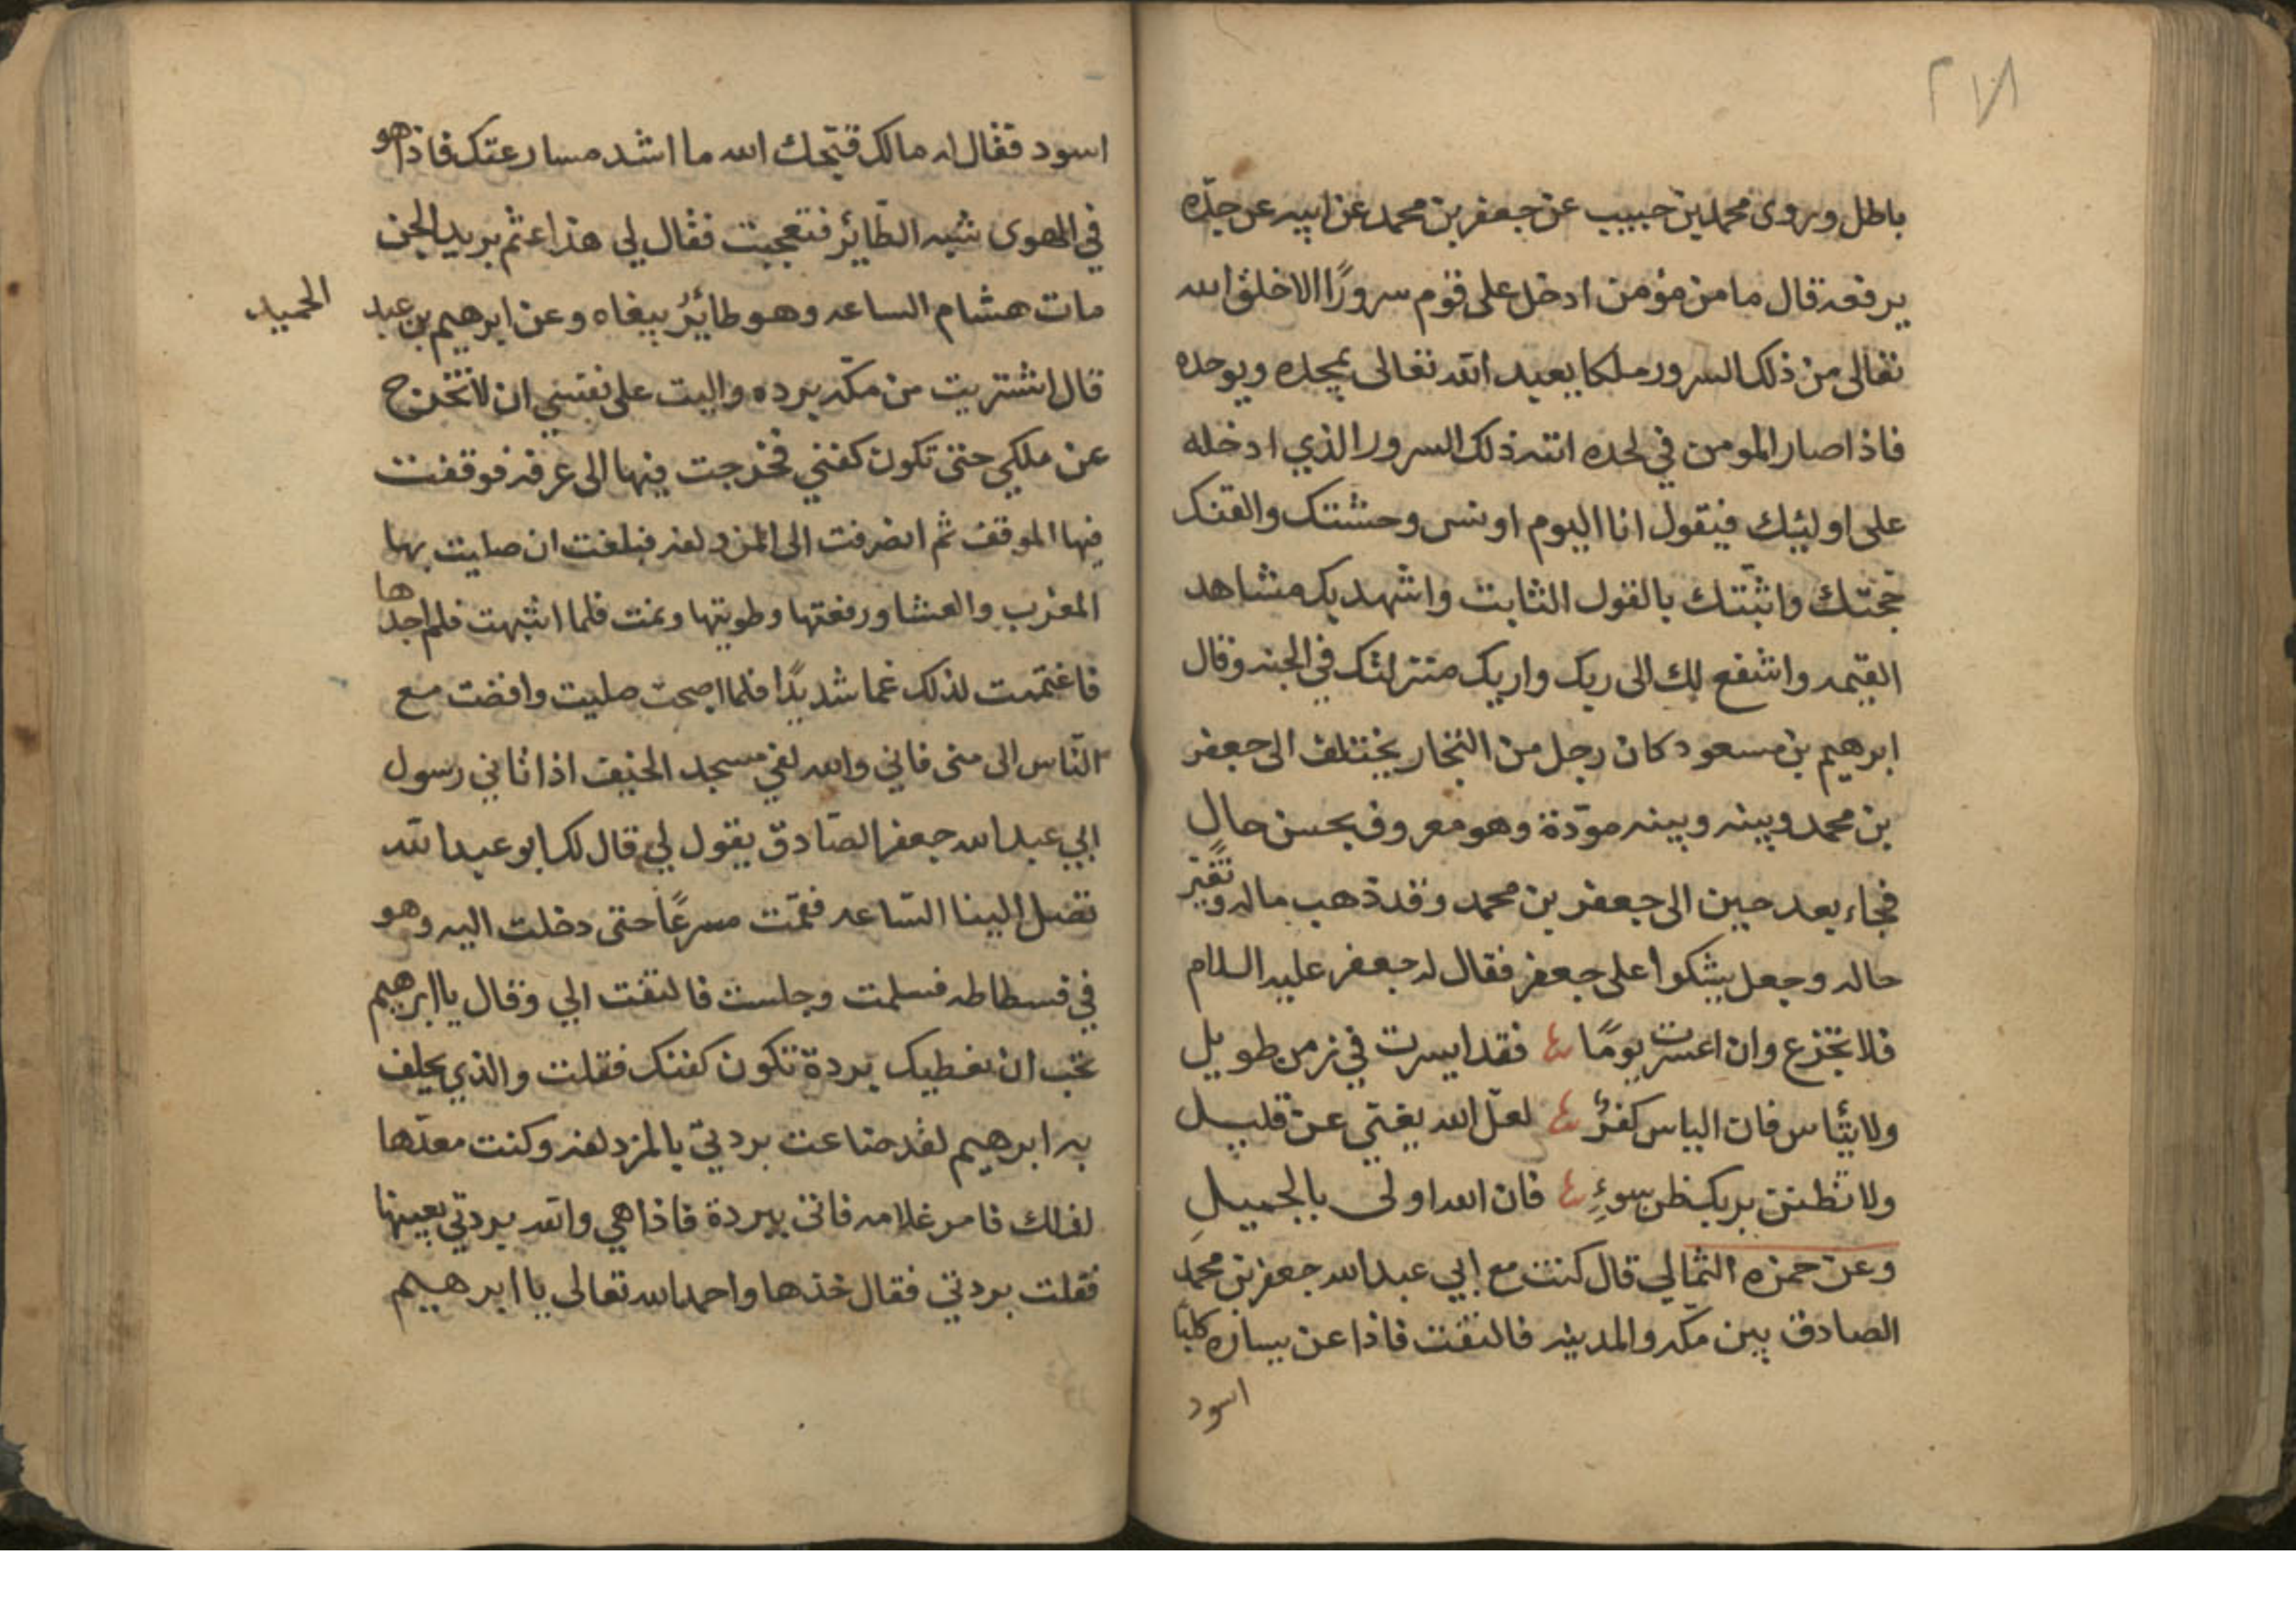 ٢١٨
باطل وروى محمد بن حبيب عن جعفر بن محمد عن ابيه عن جدّه
يرفعه قال ما من مؤمن ادخل على قوم سرورًا الا خلق الله
تعالى من ذلك السرور ملكا يعبد الله تعالى يمجده ويوحده
فاذا صار المومن في لحده اتته ذلك السرور الذي ادخله
على اوليئك فيقول انا اليوم اونس وحشتك والقنك
حجّتك واثبّتك بالقول الثابت واشهد بك مشاهد
القيمه واشفع لك الى ربك واريك منزلتك في الجنه وقال
ابرهيم بن مسعود كان رجل من التجار يختلف الى جعفر
بن محمد وبينه وبينه مودّة وهو معروف بحسن حال
فجاء بعد حين الى جعفر بن محمد وقد ذهب ماله وتغيّر
حاله وجعل يشكوا على جعفر فقال له جعفر عليه السلام
فلا تجزع وان اعسرت يومًا فقد ايسرت في زمن طويل
ولا تيئاس فان الياس كفرٌ لعلّ الله يغني عن قليل
ولا تظنن بربك ظن سوءٍ فان الله اولى بالجميلِ
وعن حمزه الثمالي قال كنت مع ابي عبد الله جعفر بن محمد
الصادق بين مكه والمدينه فالتفت فاذا عن يساره كلبًا
اسود
اسود فقال له مالك قبّحك الله ما اشد مسارعتك فاذا هو
في الهوى شبه الطّائر فتعجبت فقال لي هذا عثم بريد الجن
مات هشام الساعه وهو طائرٌ ينعاه وعن ابرهيم بن عبد
الحميد
قال اشتريت من مكّه برده واليت على نفسي ان لا تخرج
عن ملكي حتى تكون كفني فخرجت فيها الى عرفه فوقفت
فيها الموقف ثم انصرفت الى المزدلفه فبلغت ان صليت بها
المغرب والعشا ورفعتها وطويتها ونمت فلما انتبهت فلم اجدها
فاغتممت لذلك غما شديدًا فلما اصبحت صليت وافضت مع
النّاس الى منى فاني والله لفي مسجد الخيف اذ اتاني رسول
ابي عبد الله جعفر الصّادق يقول لي قال لك ابو عبد الله
تصل الينا السّاعه فقمّت مسرعًا حتى دخلت اليه وهو
في فسطاطه فسلمت وجلست فالتفت الي وقال يا ابرهيم
تحب ان نعطيك بردة تكون كفنك فقلت والذي يحلف
به ابرهيم لقد ضاعت بردتي بالمزدلفه وكنت معدّها
لذلك فامر غلامه فاتى ببردة فاذا هي والله بردتي بعينها
فقلت بردتي فقال خذها واحمد الله تعالى يا ابرهيم